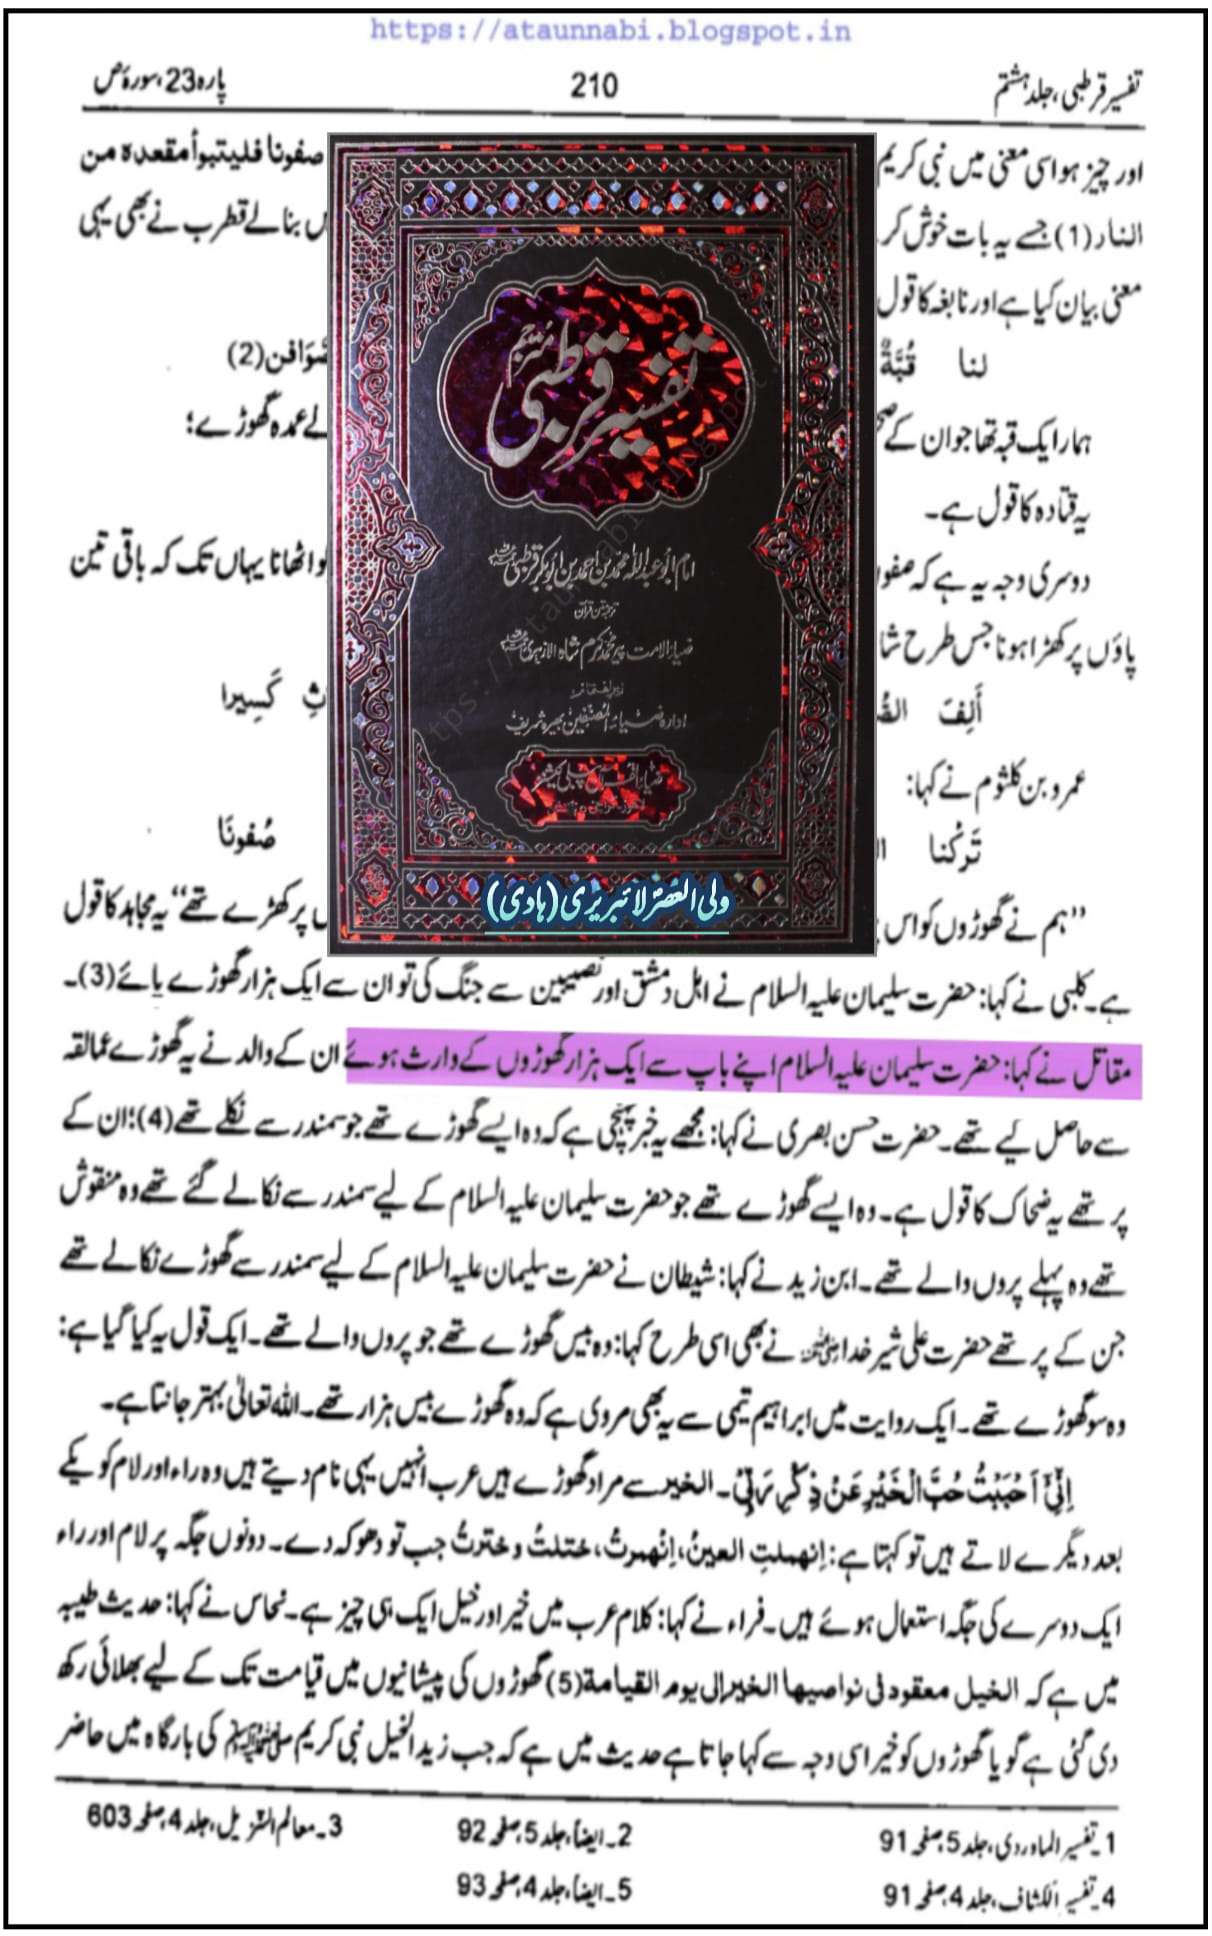 https://ataunnabi.blogspot.in
تفسیر قرطبی، جلد ہشتم 210 پارہ 23، سورۂ ص
اور چیز ہو اسی معنی میں نبی کریم صفونا فلیتبوأ مقعدہ من
النار (1) جسے یہ بات خوش کر بنالے قطرب نے بھی یہی
معنی بیان کیا ہے اور نابغہ کا قول
لنا قُبَّةٌ (2)
ہمارا ایک قبہ تھا جو ان کے عمدہ گھوڑے؛
یہ قتادہ کا قول ہے۔
دوسری وجہ یہ ہے کہ صفو اٹھانا یہاں تک کہ باقی تین
پاؤں پر کھڑا ہونا جس طرح شا
أَلِفَ كَسِيرا
عمرو بن کلثوم نے کہا:
تَرَكْنا صُفونَا
”ہم نے گھوڑوں کو اس پر کھڑے تھے“ یہ مجاہد کا قول
تفسیر قرطبی
مترجم
امام ابو عبداللہ محمد بن احمد بن ابوبکر قرطبی
ترجمہ متن قرآن
ضیاء الامت پیر محمد کرم شاہ الازہری
زیر اہتمام
ادارہ ضیاء المصنفین بھیرہ شریف
ضیاء القرآن پبلی کیشنز
ولی العصر لائبریری (ہادی)
ہے۔ کلبی نے کہا: حضرت سلیمان علیہ السلام نے اہل دمشق اور نصیبین سے جنگ کی تو ان سے ایک ہزار گھوڑے پائے (3)۔
مقاتل نے کہا: حضرت سلیمان علیہ السلام اپنے باپ سے ایک ہزار گھوڑوں کے وارث ہوئے ان کے والد نے یہ گھوڑے عمالقہ
سے حاصل کیے تھے۔ حضرت حسن بصری نے کہا: مجھے یہ خبر پہنچی ہے کہ وہ ایسے گھوڑے تھے جو سمندر سے نکلے تھے (4)؛ ان کے
پر تھے یہ ضحاک کا قول ہے۔ وہ ایسے گھوڑے تھے جو حضرت سلیمان علیہ السلام کے لیے سمندر سے نکالے گئے تھے وہ منقوش
تھے وہ پہلے پروں والے تھے۔ ابن زید نے کہا: شیطان نے حضرت سلیمان علیہ السلام کے لیے سمندر سے گھوڑے نکالے تھے
جن کے پر تھے حضرت علی شیر خدا رضی اللہ عنہ نے بھی اسی طرح کہا: وہ بیس گھوڑے تھے جو پروں والے تھے۔ ایک قول یہ کیا گیا ہے:
وہ سو گھوڑے تھے۔ ایک روایت میں ابراہیم تیمی سے یہ بھی مروی ہے کہ وہ گھوڑے بیس ہزار تھے۔ اللہ تعالیٰ بہتر جانتا ہے۔
اِنِّیْۤ اَحْبَبْتُ حُبَّ الْخَیْرِ عَنْ ذِكْرِ رَبِّیْ۔ الخیر سے مراد گھوڑے ہیں عرب انہیں یہی نام دیتے ہیں وہ راء اور لام کو یکے
بعد دیگرے لاتے ہیں تو کہتا ہے: اِنهملتِ العینُ، اِنْهمرتْ، ختلتُ و خترتُ جب تو دھوکہ دے۔ دونوں جگہ پر لام اور راء
ایک دوسرے کی جگہ استعمال ہوئے ہیں۔ فراء نے کہا: کلام عرب میں خیر اور خیل ایک ہی چیز ہے۔ نحاس نے کہا: حدیث طیبہ
میں ہے کہ الخیل معقود فی نواصیها الخیر الی یوم القیامة (5) گھوڑوں کی پیشانیوں میں قیامت تک کے لیے بھلائی رکھ
دی گئی ہے گویا گھوڑوں کو خیر اسی وجہ سے کہا جاتا ہے حدیث میں ہے کہ جب زید الخیل نبی کریم صلی اللہ علیہ وسلم کی بارگاہ میں حاضر
1۔ تفسیر الماوردی، جلد 5، صفحہ 91 2۔ ایضاً، جلد 5، صفحہ 92 3۔ معالم التنزیل، جلد 4، صفحہ 603
4۔ تفسیر الکشاف، جلد 4، صفحہ 91 5۔ ایضاً، جلد 4، صفحہ 93